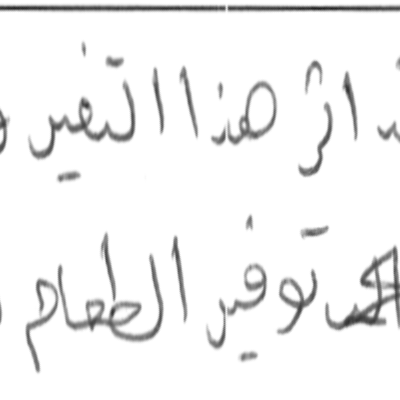 أثر هذا التغير
توفير الطعام